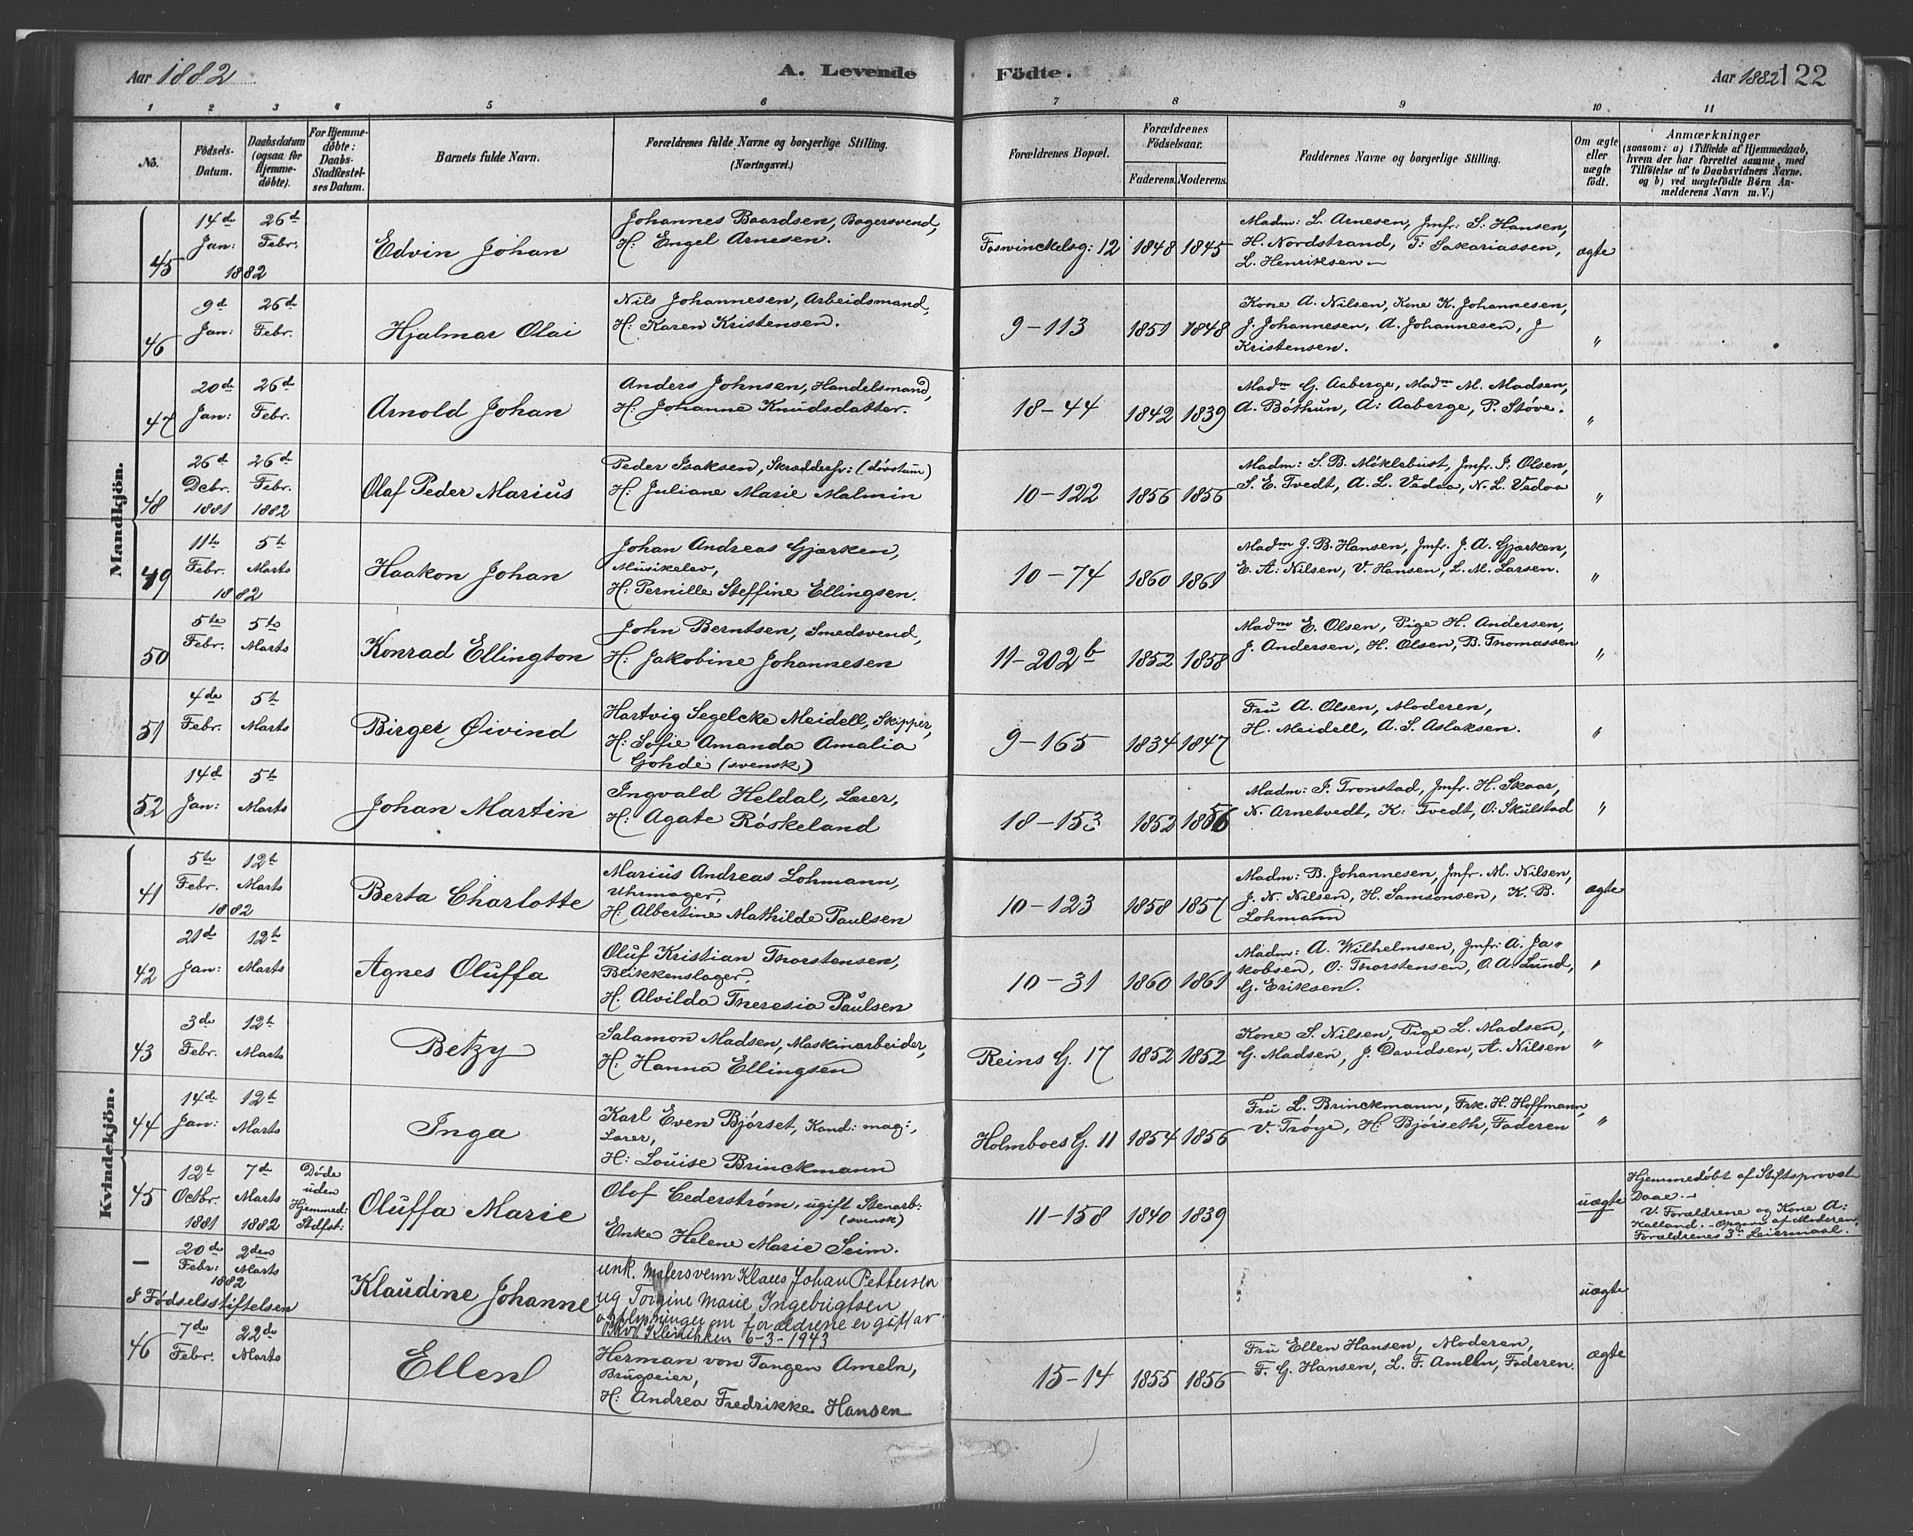 Aar 1882
A. Levende
Födte.
Aar 1882
122
1 2 3 4 5 6 7 8 9 10 11
No.
Födsels-
Datum.
Daabsdatum
(ogsaa for
Hjemme-
döbte).
For Hjemme-
döbte:
Daabs-
Stadfæstel-
ses Datum.
Barnets fulde Navn.
Forældrenes fulde Navne og borgerlige Stilling.
(Næringsvei.)
Forældrenes Bopæl.
Forældrenes
Födselsaar.
Faderens. Moderens.
Faddernes Navne og borgerlige Stilling.
Om ægte
eller
uægte
födt.
Anmærkninger
(saasom: a) i Tilfælde af Hjemmedaab,
hvem der har forrettet samme, med
Tilföielse af to Daabsvidners Navne.
og b) ved uægtefödte Börn An-
melderens Navn m. V.)
Mandkjön.
45
14de Jan: 1882
26de Febr.
Edvin Johan
Johannes Baardsen, Bagersvend,
H: Engel Arnesen.
Foswinckelsg: 12
1848 1845
Madm: L. Arnesen, Jmfr: S. Hansen,
H. Nordstrand, T: Sakariassen,
L. Henriksen
ægte
46
9d Jan:
26de Febr.
Hjalmar Olai
Nils Johannesen, Arbeidsmand,
H: Karen Kristensen.
9-113
1851 1848
Kone A. Nilsen, Kone K. Johannesen,
J. Johannesen, A. Johannesen, J
Kristensen.
"
47
20de Jan:
26de Febr.
Arnold Johan
Anders Johnsen, Handelsmand,
H: Johanne Knudsdatter.
18-44
1842 1839
Madm G. Aaberge, Madm M. Madsen,
A. Böthun, A: Aaberge, P. Støve.
"
48
26de Decbr. 1881
26de Febr. 1882
Olaf Peder Marius
Peder Isaksen, Skrædderfv: (døvstum)
H: Juliane Marie Malmin
10-122
1856 1856
Madm: S. B. Møklebust, Jmfr. J. Olsen,
S. E. Tvedt, A. L. Vedaa, N. L. Vedaa
"
49
11te Febr. 1882
5te Marts
Haakon Johan
Johan Andreas Gjærken,
Musikelev,
H: Pernille Steffine Ellingsen.
10-74
1860 1861
Madm J. B. Hansen, Jmfr. J. A. Gjærken,
E. A: Nilsen, V. Hansen, L. M. Larsen.
"
50
5te Febr.
5te Marts
Konrad Ellington
John Berntsen, Smedsvend,
H: Jakobine Johannesen
11-202b
1852 1858
Madm E. Olsen, Pige H. Andersen,
J. Andersen, H. Olsen, B. Thomassen
"
51
4de Febr.
5te Marts
Birger Øivind
Hartvig Segelcke Meidell, Skipper,
H: Sofie Amanda Amalia
Gohde (svensk)
9-165
1834 1847
Fru A. Olsen, Moderen,
H. Meidell, A. S. Aslaksen.
"
52
14de Jan:
5te Marts
Johan Martin
Ingvald Heldal, Lærer,
H: Agate Røskeland
18-153
1852 1856
Madm: J. Tronstad, Jmfr. H. Skaar,
N. Arnetvedt, K: Tvedt, O: Skulstad
"
Kvindekjön.
41
5te Febr. 1882
12te Marts
Berta Charlotte
Marius Andreas Lohmann,
Uhrmager,
H: Albertine Mathilde Paulsen
10-123
1858 1857
Madm: B. Johannesen, Jmfr. M. Nilsen,
J. N. Nilsen, H. Samsonsen, K. B.
Lohmann
ægte
42
21de Jan:
12te Marts
Agnes Oluffa
Oluf Kristian Thorstensen,
Blikkenslager,
H: Alvilda Theresia Paulsen
10-31
1860 1861
Madm: A. Wilhelmsen, Jmfr: A. Ja-
kobsen, O: Thorstensen, O. A. Lund,
G. Eriksen.
"
43
3de Febr.
12te Marts
Betzy
Salamon Madsen, Maskinarbeider,
H: Hanna Ellingsen
Reins G. 17
1852 1852
Kone S. Nilsen, Pige L. Madsen,
G. Madsen, J. Davidsen, A. Nilsen
"
44
14de Jan:
12te Marts
Inga
Karl Even Bjørset, Kand: mag:,
Lærer,
H: Louise Brinckmann
Holmboes G. 11
1854 1856
Fru L. Brinckmann, Frk. H. Hoffmann,
V. Trøye, H Bjørseth, Faderen
"
45
12te Octbr. 1881
7de Marts 1882
Døde
uden
Hjemmed:
Stdfst:
Oluffa Marie
Olof Cederstrøm, ugift Stenarb:
(svensk)
Enke Helene Marie Seim.
11-158
1840 1839
uægte
Hjemmedøbt af Stiftsprovst
Daae.
V: Forældrene og Kone A:
Kalland. - Opgivn af Moderen,
Forældrenes 3de Leiermaal.
—
20de Febr: 1882
2den Marts
I Fødselsstiftelsen
Klaudine Johanne
unk. Malersvenn Klaus Johan Pettersen
ug Torgine Marie Ingebrigtsen
opplysninger om foreldrene er gitt av
Kvi. Klinikken 6-3-1943
uægte
46
7de Febr.
22de Marts
Ellen
Herman von Tangen Ameln,
Brugseier,
H: Andrea Fredrikke Hansen
15-14
1855 1856
Fru Ellen Hansen, Moderen,
F. G. Hansen, L. F. Ameln, Faderen.
ægte